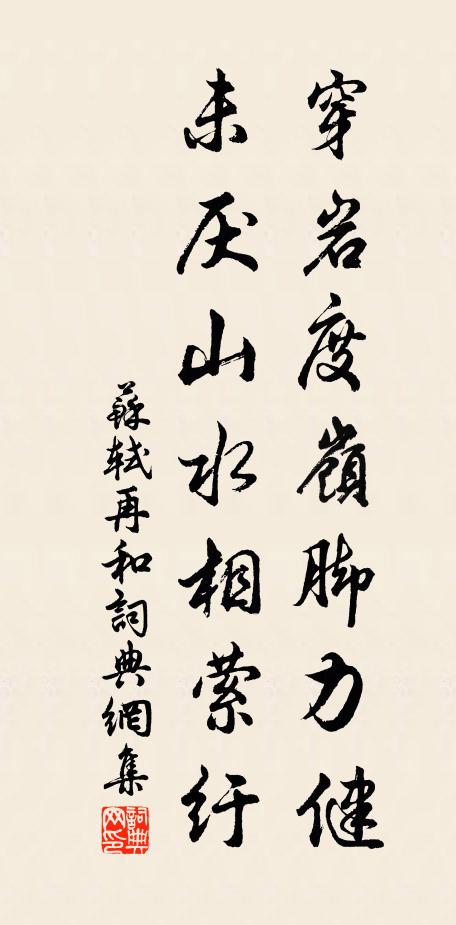 穿岩度嶺脚力健
未厌山水相萦纡
蘇軾再和詞典網集
詞典
网印